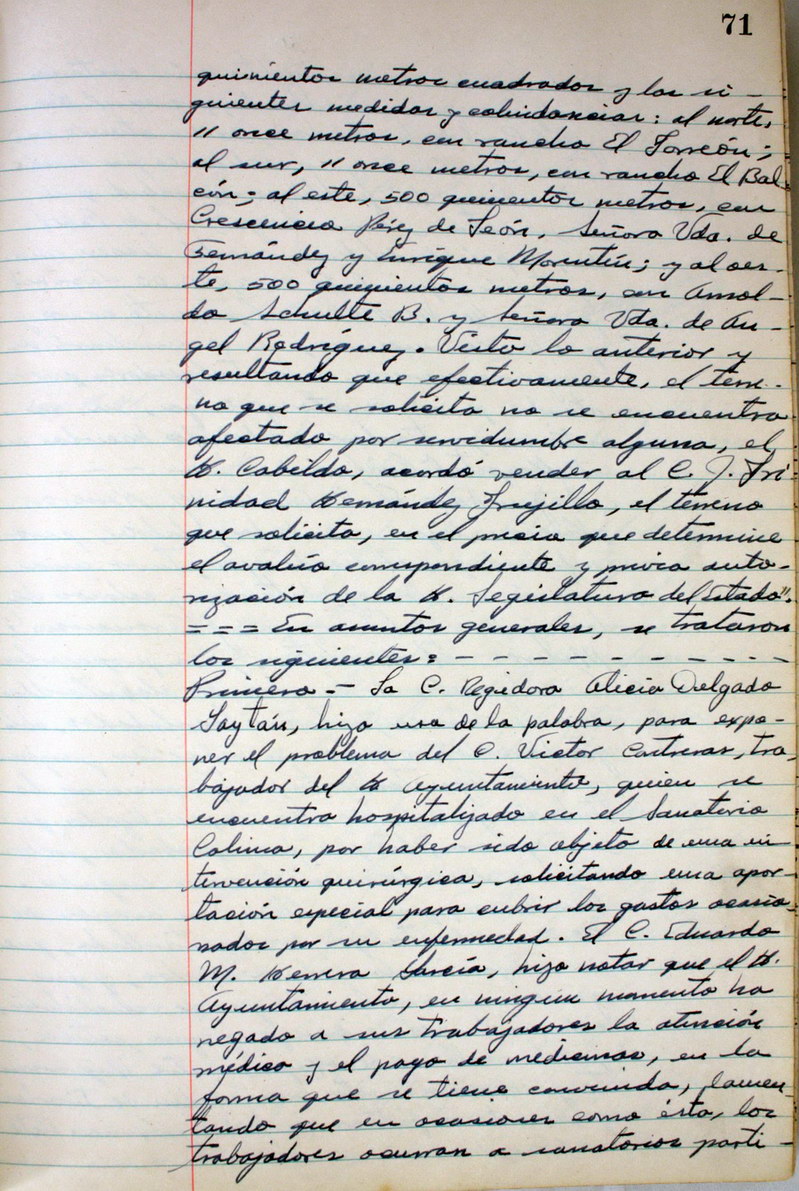 71
quinientos metros cuadrados y las si-
guientes medidas y colindancias: al norte,
11 once metros, con rancho El Torreón;
al sur, 11 once metros, con rancho El Bal-
cón; al este, 500 quinientos metros, con
Crescencio Pérez de León, Señora Vda. de
Fernández y Enrique Morentín; y al oes-
te, 500 quinientos metros, con Arnol-
do Schulte B. y Señora Vda. de An-
gel Rodríguez. Visto lo anterior y
resultando que efectivamente, el terre-
no que se solicita no se encuentra
afectado por servidumbre alguna, el
H. Cabildo, acordó vender al C. J. Tri-
nidad Hernández Trujillo, el terreno
que solicita, en el precio que determine
el avalúo correspondiente y previa auto-
rización de la H. Legislatura del Estado".
= = = En asuntos generales, se trataron
los siguientes: - - - - - - - - - -
Primero.- La C. Regidora Alicia Delgado
Gaytán, hizo uso de la palabra, para expo-
ner el problema del C. Victor Contreras, tra-
bajador del H. Ayuntamiento, quien se
encuentra hospitalizado en el Sanatorio
Colima, por haber sido objeto de una in-
tervención quirúrgica, solicitando una apor-
tación especial para cubrir los gastos ocasio-
nados por su enfermedad. El C. Eduardo
M. Herrera García, hizo notar que el H.
Ayuntamiento, en ningún momento ha
negado a sus trabajadores la atención
médica y el pago de medicinas, en la
forma que se tiene convenida, lamen-
tando que en ocasiones como ésta, los
trabajadores ocurran a sanatorios parti-